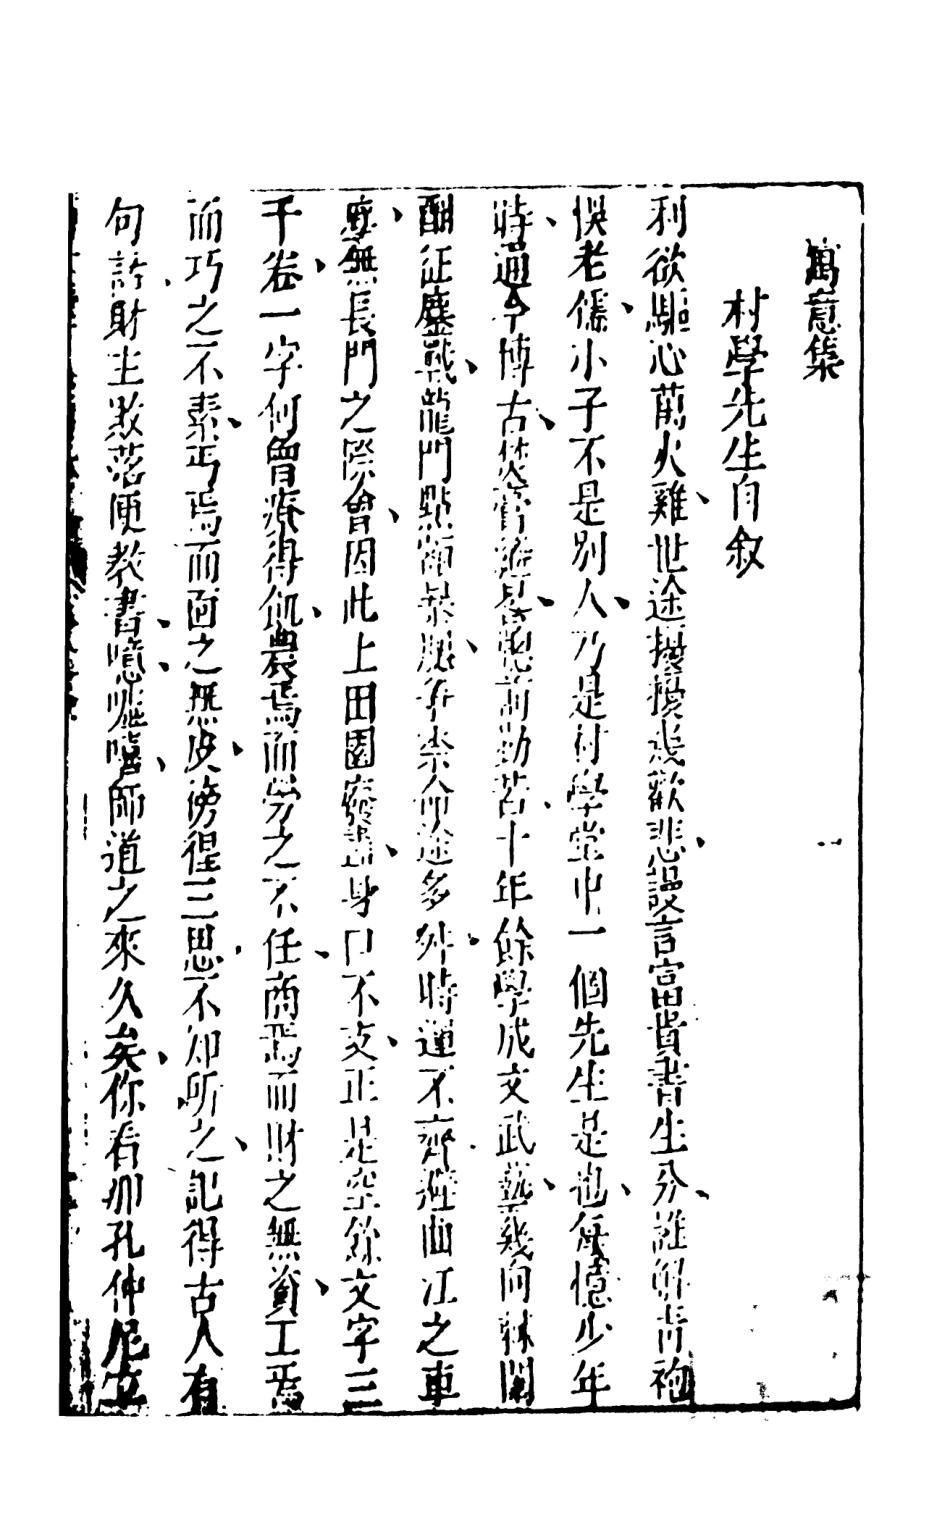 寓意集
村學先生自叙
利欲驅心萬火雞、世途擾擾戔歡悲、謾言富貴書生分、誰解青袍
悮老儒、小子不是別人、乃是村學堂中一個先生是也、每憶少年
時、通今博古、焚膏、窓前勤苦、十年餘學成文武藝、幾向棘闈
酣征塵戰、龍門點額暴腮、爭柰命途多舛、時運不齊、遊曲江之車
塵、無長門之際會、因此上田園廢盡、身口不支、正是空餘文字三
千卷、一字何曾療得飢、農焉而勞之不任、商焉而財之無資、工焉
而巧之不素、丐焉而面之無皮、徬徨三思、不知所之、記得古人有
句話、財主敗落便教書、噫、嘻、師道之來久矣、你看那孔仲尼立